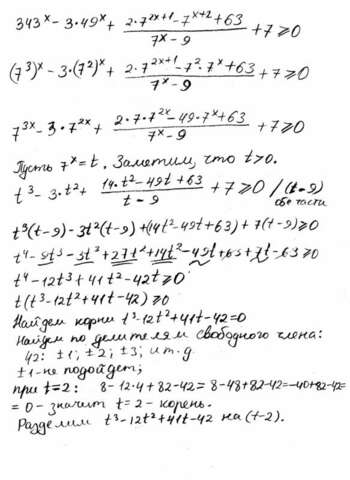 343ˣ - 3·49ˣ + (2·7²ˣ⁺¹ - 7ˣ⁺² + 63)/(7ˣ - 9) + 7 ⩾ 0
(7³)ˣ - 3·(7²)ˣ + (2·7²ˣ⁺¹ - 7²·7ˣ + 63)/(7ˣ - 9) + 7 ⩾ 0
7³ˣ - 3·7²ˣ + (2·7·7²ˣ - 49·7ˣ + 63)/(7ˣ - 9) + 7 ⩾ 0
Пусть 7ˣ = t. Заметим, что t>0.
t³ - 3·t² + (14·t² - 49t + 63)/(t - 9) + 7 ⩾ 0 /·(t-9) обе части
t³(t-9) - 3t²(t-9) + (14t² - 49t + 63) + 7(t-9) ⩾ 0
t⁴ - 9t³ - 3t³ + 27t² + 14t² - 49t + 63 + 7t - 63 ⩾ 0
t⁴ - 12t³ + 41t² - 42t ⩾ 0
t(t³ - 12t² + 41t - 42) ⩾ 0
Найдем корни t³ - 12t² + 41t - 42 = 0
Найдем по делителям свободного члена:
42: ±1; ±2; ±3; и т.д.
±1 - не подойдет;
при t=2: 8 - 12·4 + 82 - 42 = 8 - 48 + 82 - 42 = -40 + 82 - 42 =
= 0 - значит t = 2 - корень.
Разделим t³ - 12t² + 41t - 42 на (t-2).